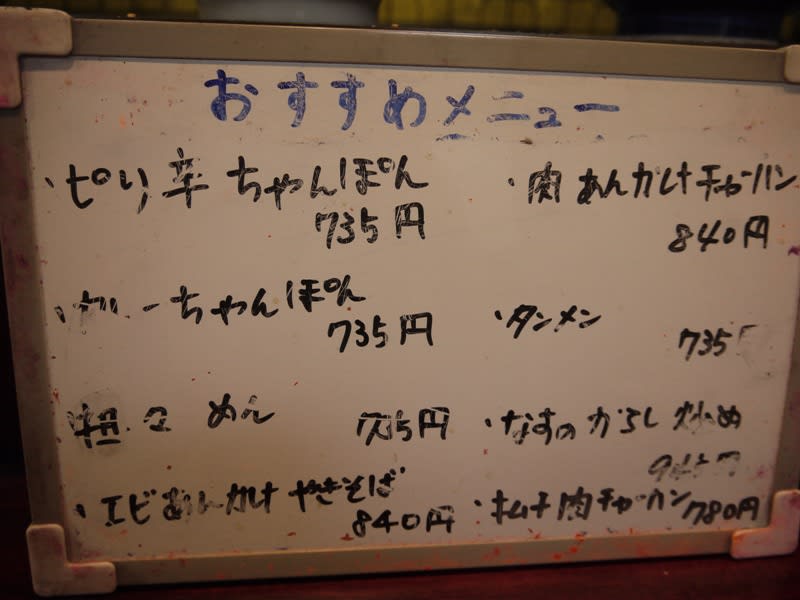 おすすめメニュー
・ピリ辛ちゃんぽん
735円
・カレーちゃんぽん
735円
担々めん
735円
・エビあんかけやきそば
840円
・肉あんかけチャーハン
840円
・タンメン
735円
・なすのからし炒め
945円
・キムチ肉チャーハン 780円